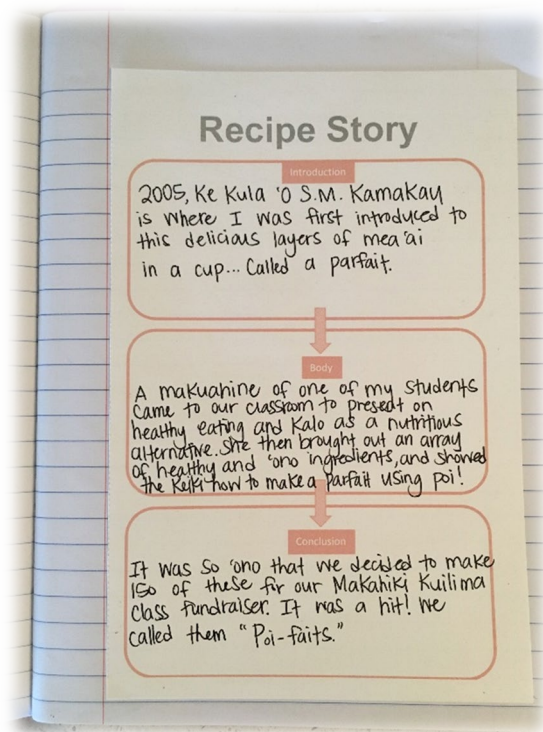 Recipe Story
Introduction
2005, Ke Kula 'O S.M. Kamakau
is where I was first introduced to
this delicious layers of mea 'ai
in a cup... Called a parfait.
Body
A makuahine of one of my students
came to our classroom to present on
healthy eating and Kalo as a nutritious
alternative. She then brought out an array
of healthy and 'ono ingredients, and showed
the Keiki how to make a parfait using poi!
Conclusion
It was so 'ono that we decided to make
150 of these for our Makahiki Kuilima
class fundraiser. It was a hit! We
called them "Poi-faits."